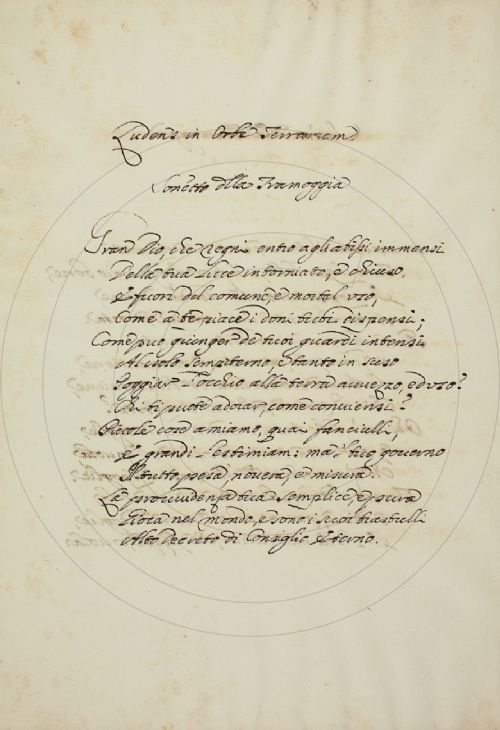 Ludens in Orbe Terrarum
Sonetto della Tramoggia
Gran Dio, che regni entro agli abissi immensi
Della tua luce intorniato, e chiuso,
E fuori del comune, e mortal uso,
Come a te piace i doni tuoi dispensi;
Come può giunger de tuoi guardi intensi
Al solo sempiterno, e tanto in suso
Poggiar l'occhio alla terra avvezzo, ed uso?
Chi ti puote adorar, come conviensi?
Piccole cose amiamo, quai fanciulli,
E grandi l'estimiam: ma 'l tuo governo
Il tutto pesa, novera, e misura.
La provvidenza tua semplice, e pura
Gioca nel mondo, e sono i suoi trastulli
Alto Decreto di Consiglio Eterno.